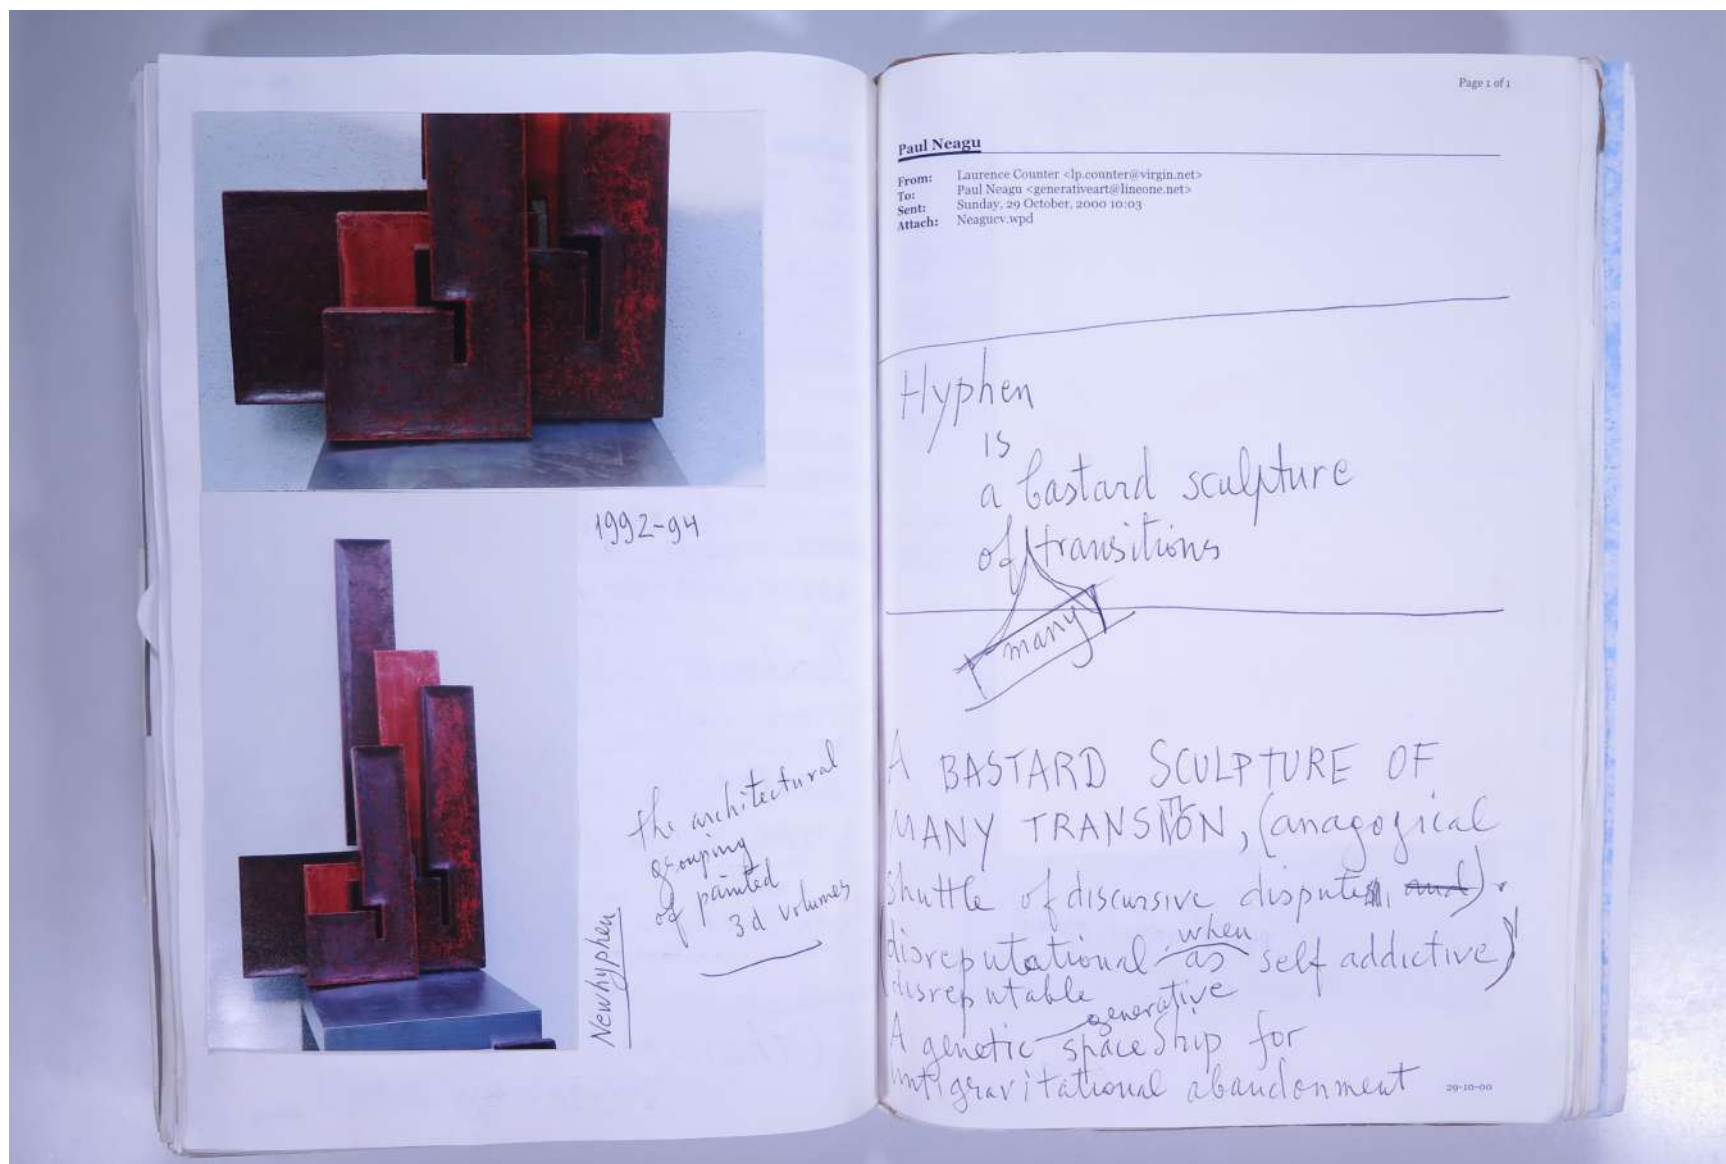 1992-94
the architectural
grouping
of painted
3d volumes
Newhyphen
Page 1 of 1
Paul Neagu
From: Laurence Counter <lp.counter@virgin.net>
To: Paul Neagu <generativeart@lineone.net>
Sent: Sunday, 29 October, 2000 10:03
Attach: Neagucv.wpd
Hyphen
is
a bastard sculpture
of transitions
many
A BASTARD SCULPTURE OF
MANY TRANSITION, (anagogical
shuttle of discursive dispute
when
disreputational as self addictive)
disreputable
generative
A genetic spaceship for
antigravitational abandonment
29-10-00